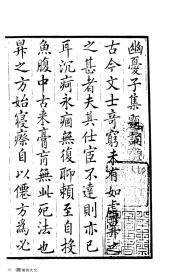 幽憂子集題詞
古今文士奇窮未有如盧昇之
之甚者夫其仕宦不達則亦已
耳沉痾永痼無復聊賴至自投
魚腹中古來膏肓無此死法也
昇之方始寢瘵自以僊方為必